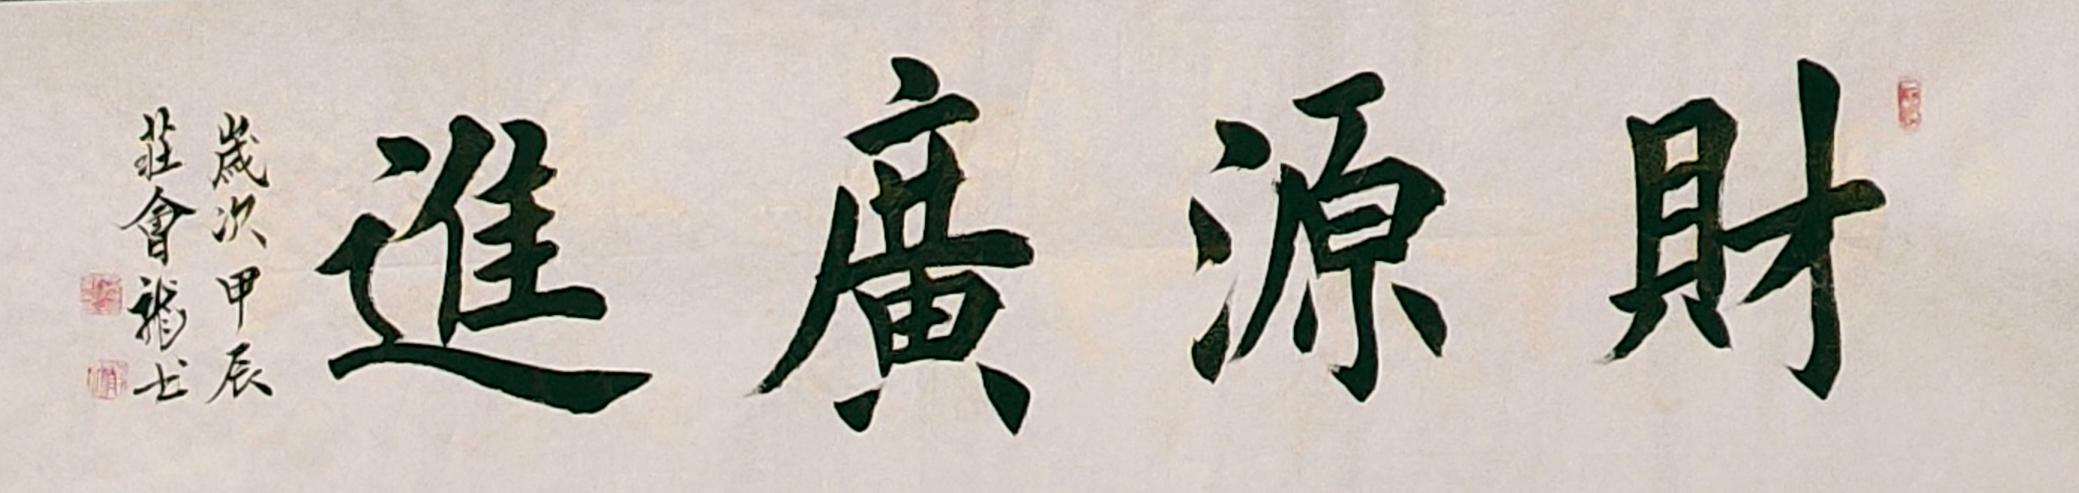 財源廣進
歲次甲辰
莊會龍书